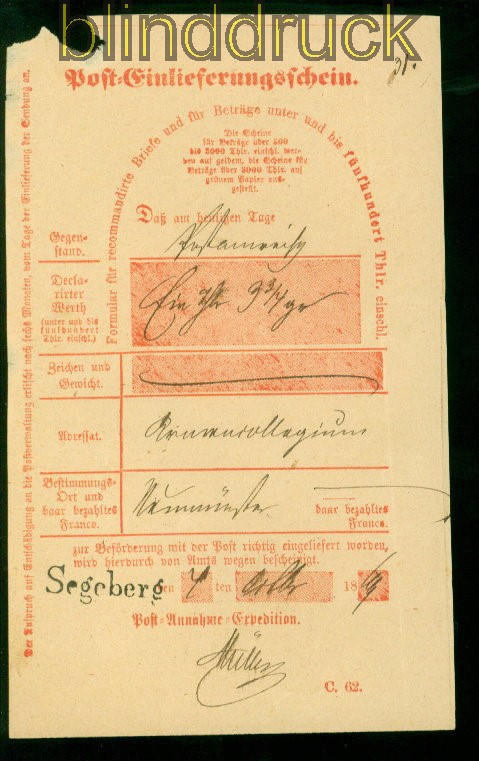 blinddruck
31.
Post-Einlieferungsschein.
Formular für recommandirte Briefe und für Beträge unter und bis fünfhundert Thlr. einschl.
Die Scheine
für Beträge über 500
bis 3000 Thlr. einschl. wer-
den auf gelbem, die Scheine für
Beträge über 3000 Thlr. auf
grünem Papier aus-
gestellt.
Daß am heutigen Tage
Gegen-
stand.
Postanweisg
Decla-
rirter
Werth
(unter und bis
fünfhundert
Thlr. einschl.)
Ein Thlr 9 3/4 gr
Zeichen und
Gewicht.
Adressat.
Armencollegium
Bestimmungs-
Ort und
baar bezahltes
Franco.
Neumünster
baar bezahltes
Franco.
zur Beförderung mit der Post richtig eingeliefert worden,
wird hierdurch von Amts wegen bescheinigt.
Segeberg den 4 ten 1869
Post-Annahme-Expedition.
Müller
C. 62.
Der Anspruch auf Entschädigung an die Postverwaltung erlischt nach sechs Monaten, vom Tage der Einlieferung der Sendung an.